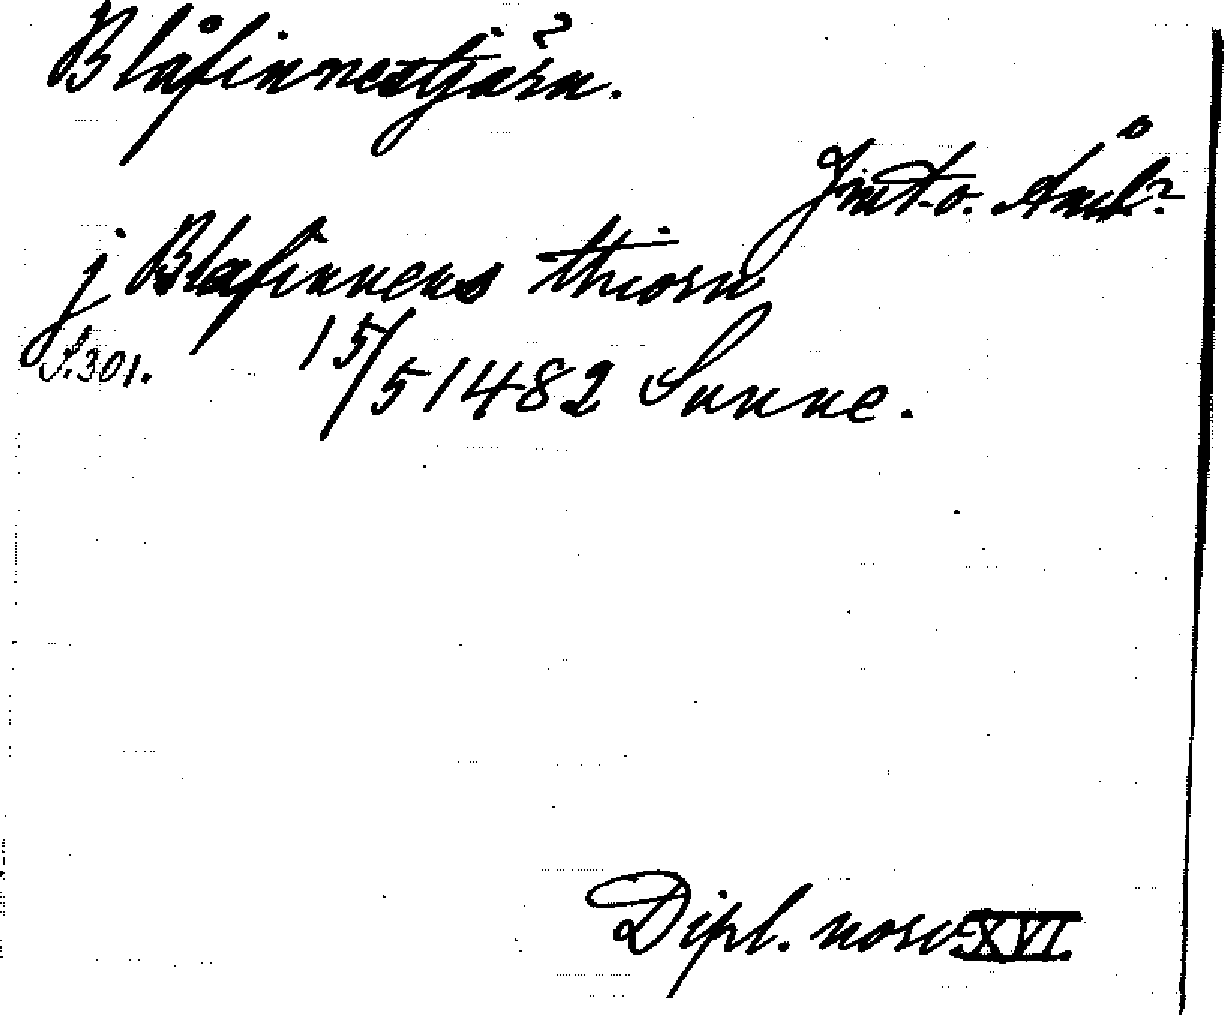 Blåfinnestjärn. ?
Jmt o. Ång?
j Blafinnens thiorn
S. 301. 15/5 1482 Sunne.
Dipl. norv. XVI.